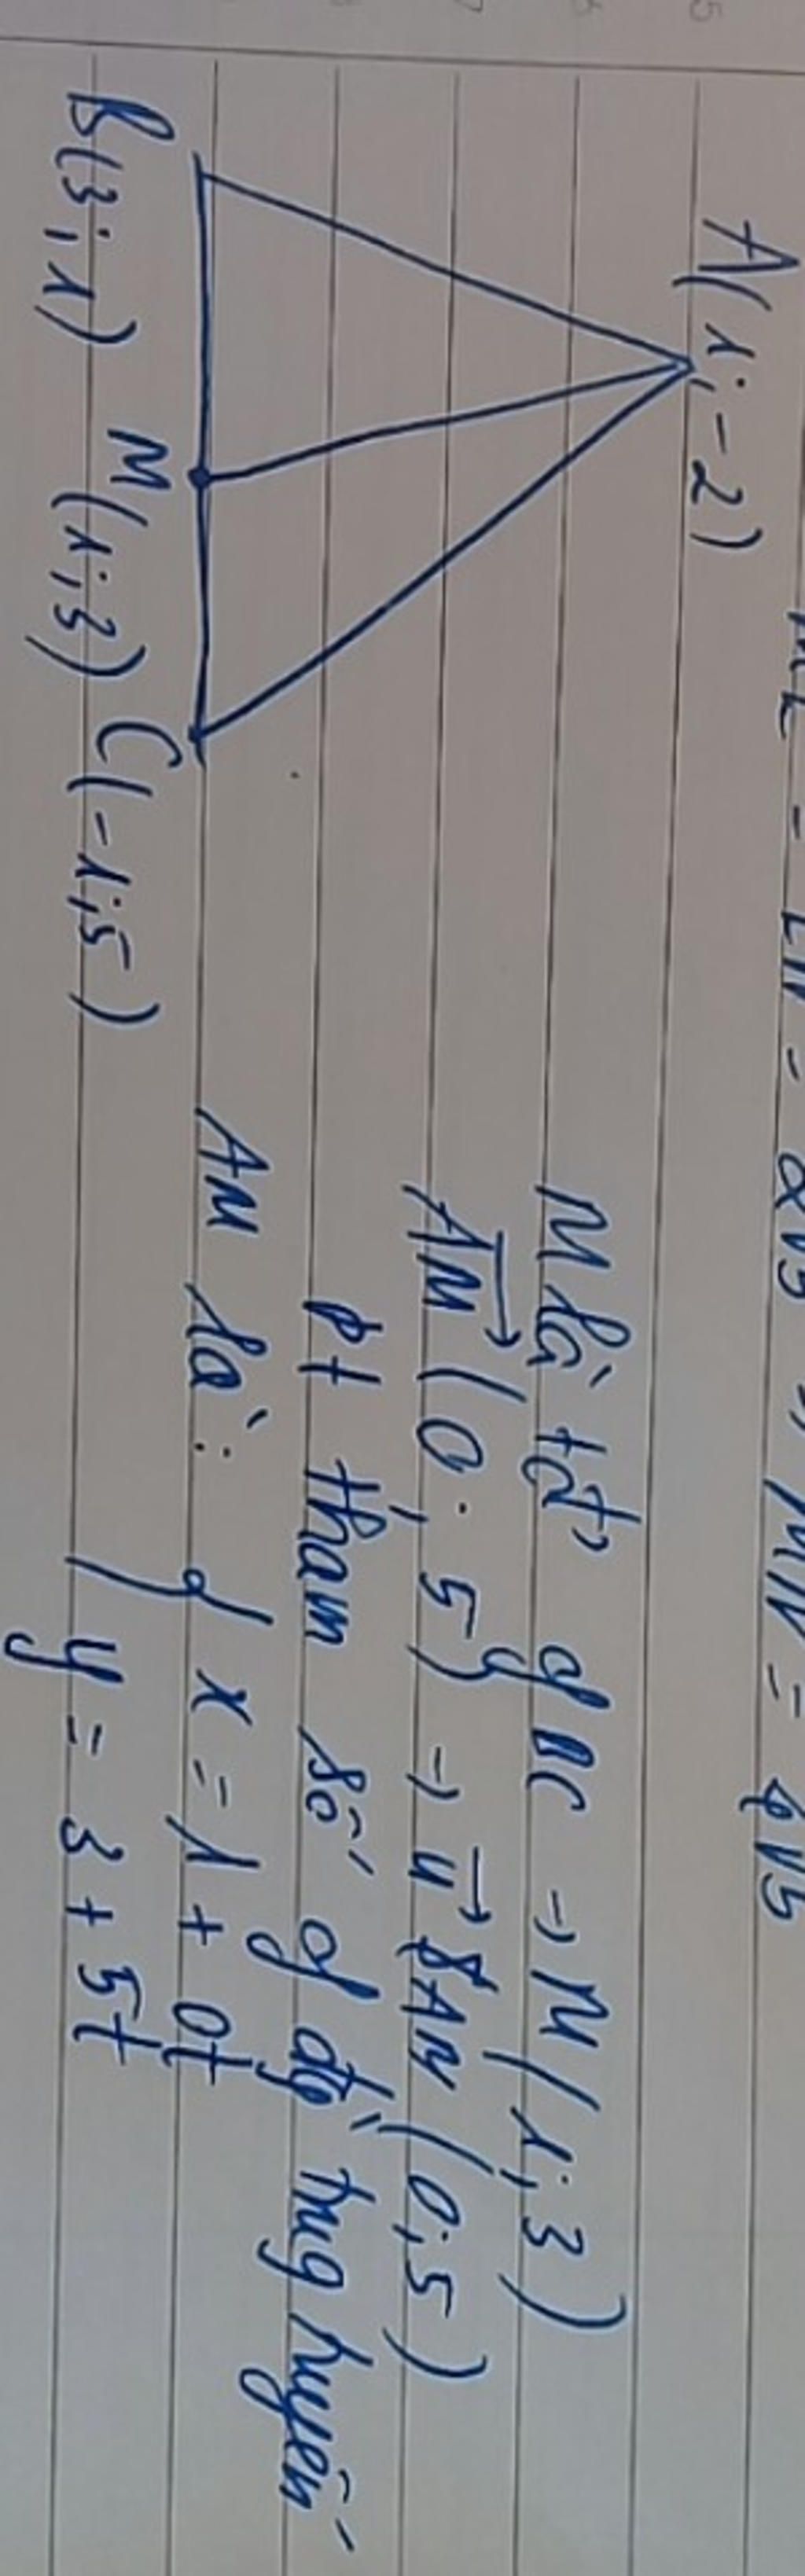 A(1;-2)
B(3;1) M(1;3) C(-1;5)
M là tđ' of BC → M(1;3)
AM→ (0;5) → u→ AM (0;5)
Pt tham số of đg' trug tuyến
AM là: { x = 1 + 0t
y = 3 + 5t